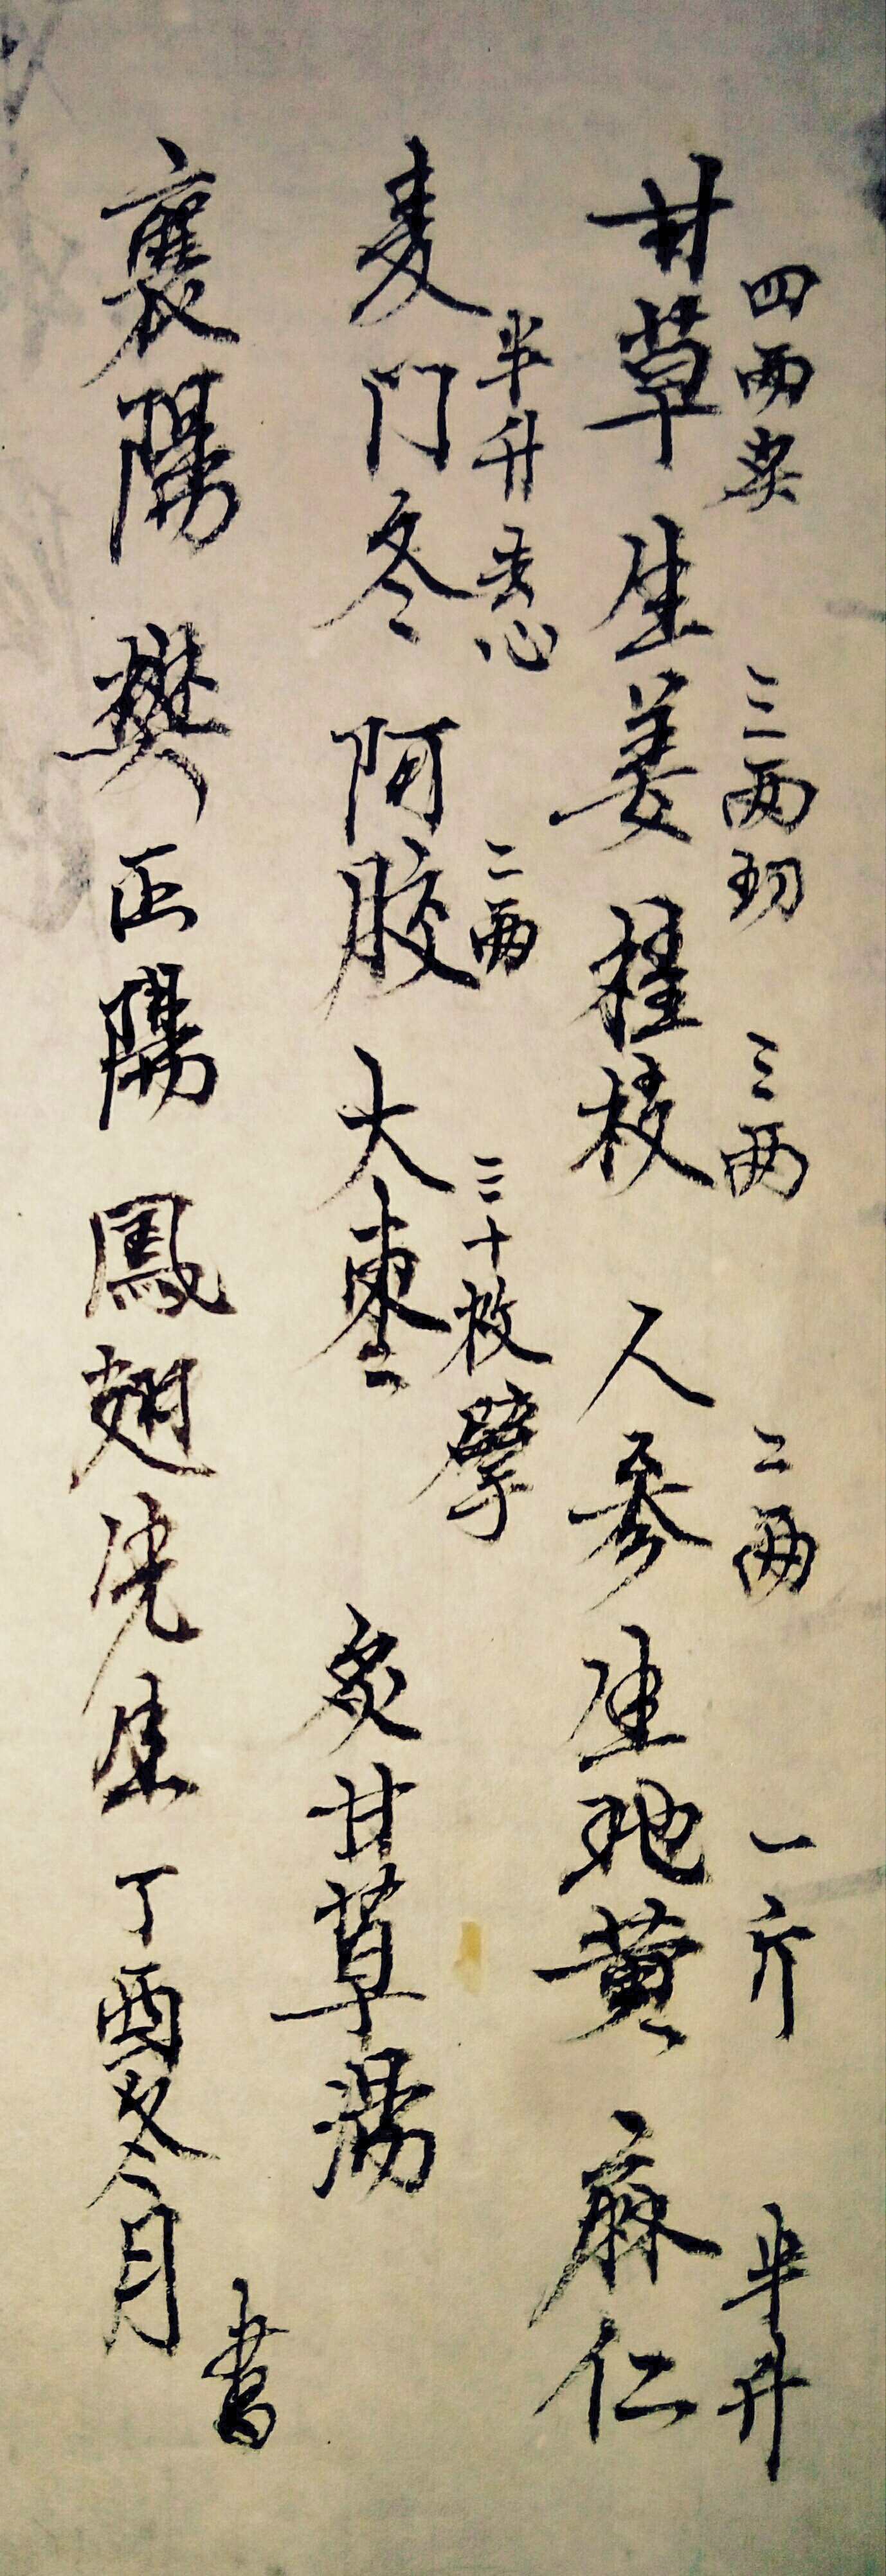 四两炙 三两切 三两 二两 一斤 半升
甘草 生姜 桂枝 人参 生地黄 麻仁
半升去心 二两 三十枚擘
麦门冬 阿胶 大枣 炙甘草湯
襄陽 樊正陽 鳳翅先生 丁酉冬月
書